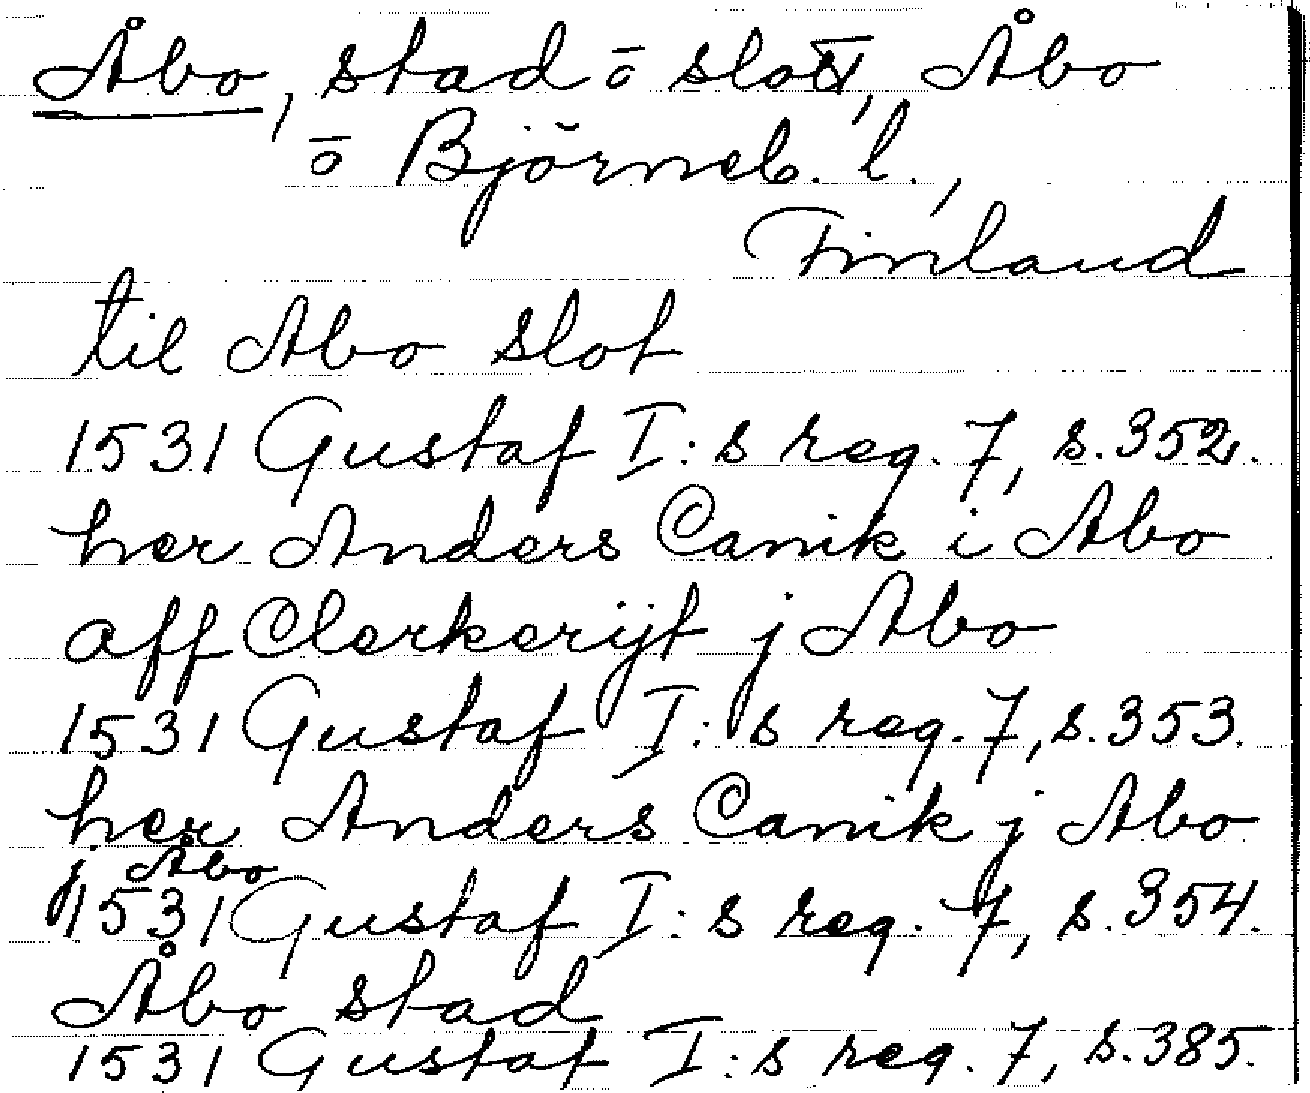 Åbo, stad ō slott, Åbo
ō Björneb. l.,
Finland
til Abo slot
1531 Gustaf I:s reg. 7, s. 352.
her Anders Canik i Abo
aff Clerkerijt j Abo
1531 Gustaf I:s reg. 7, s. 353.
her Anders Canik j Abo
j Abo
1531 Gustaf I:s reg. 7, s. 354.
Åbo stad
1531 Gustaf I:s reg. 7, s. 385.